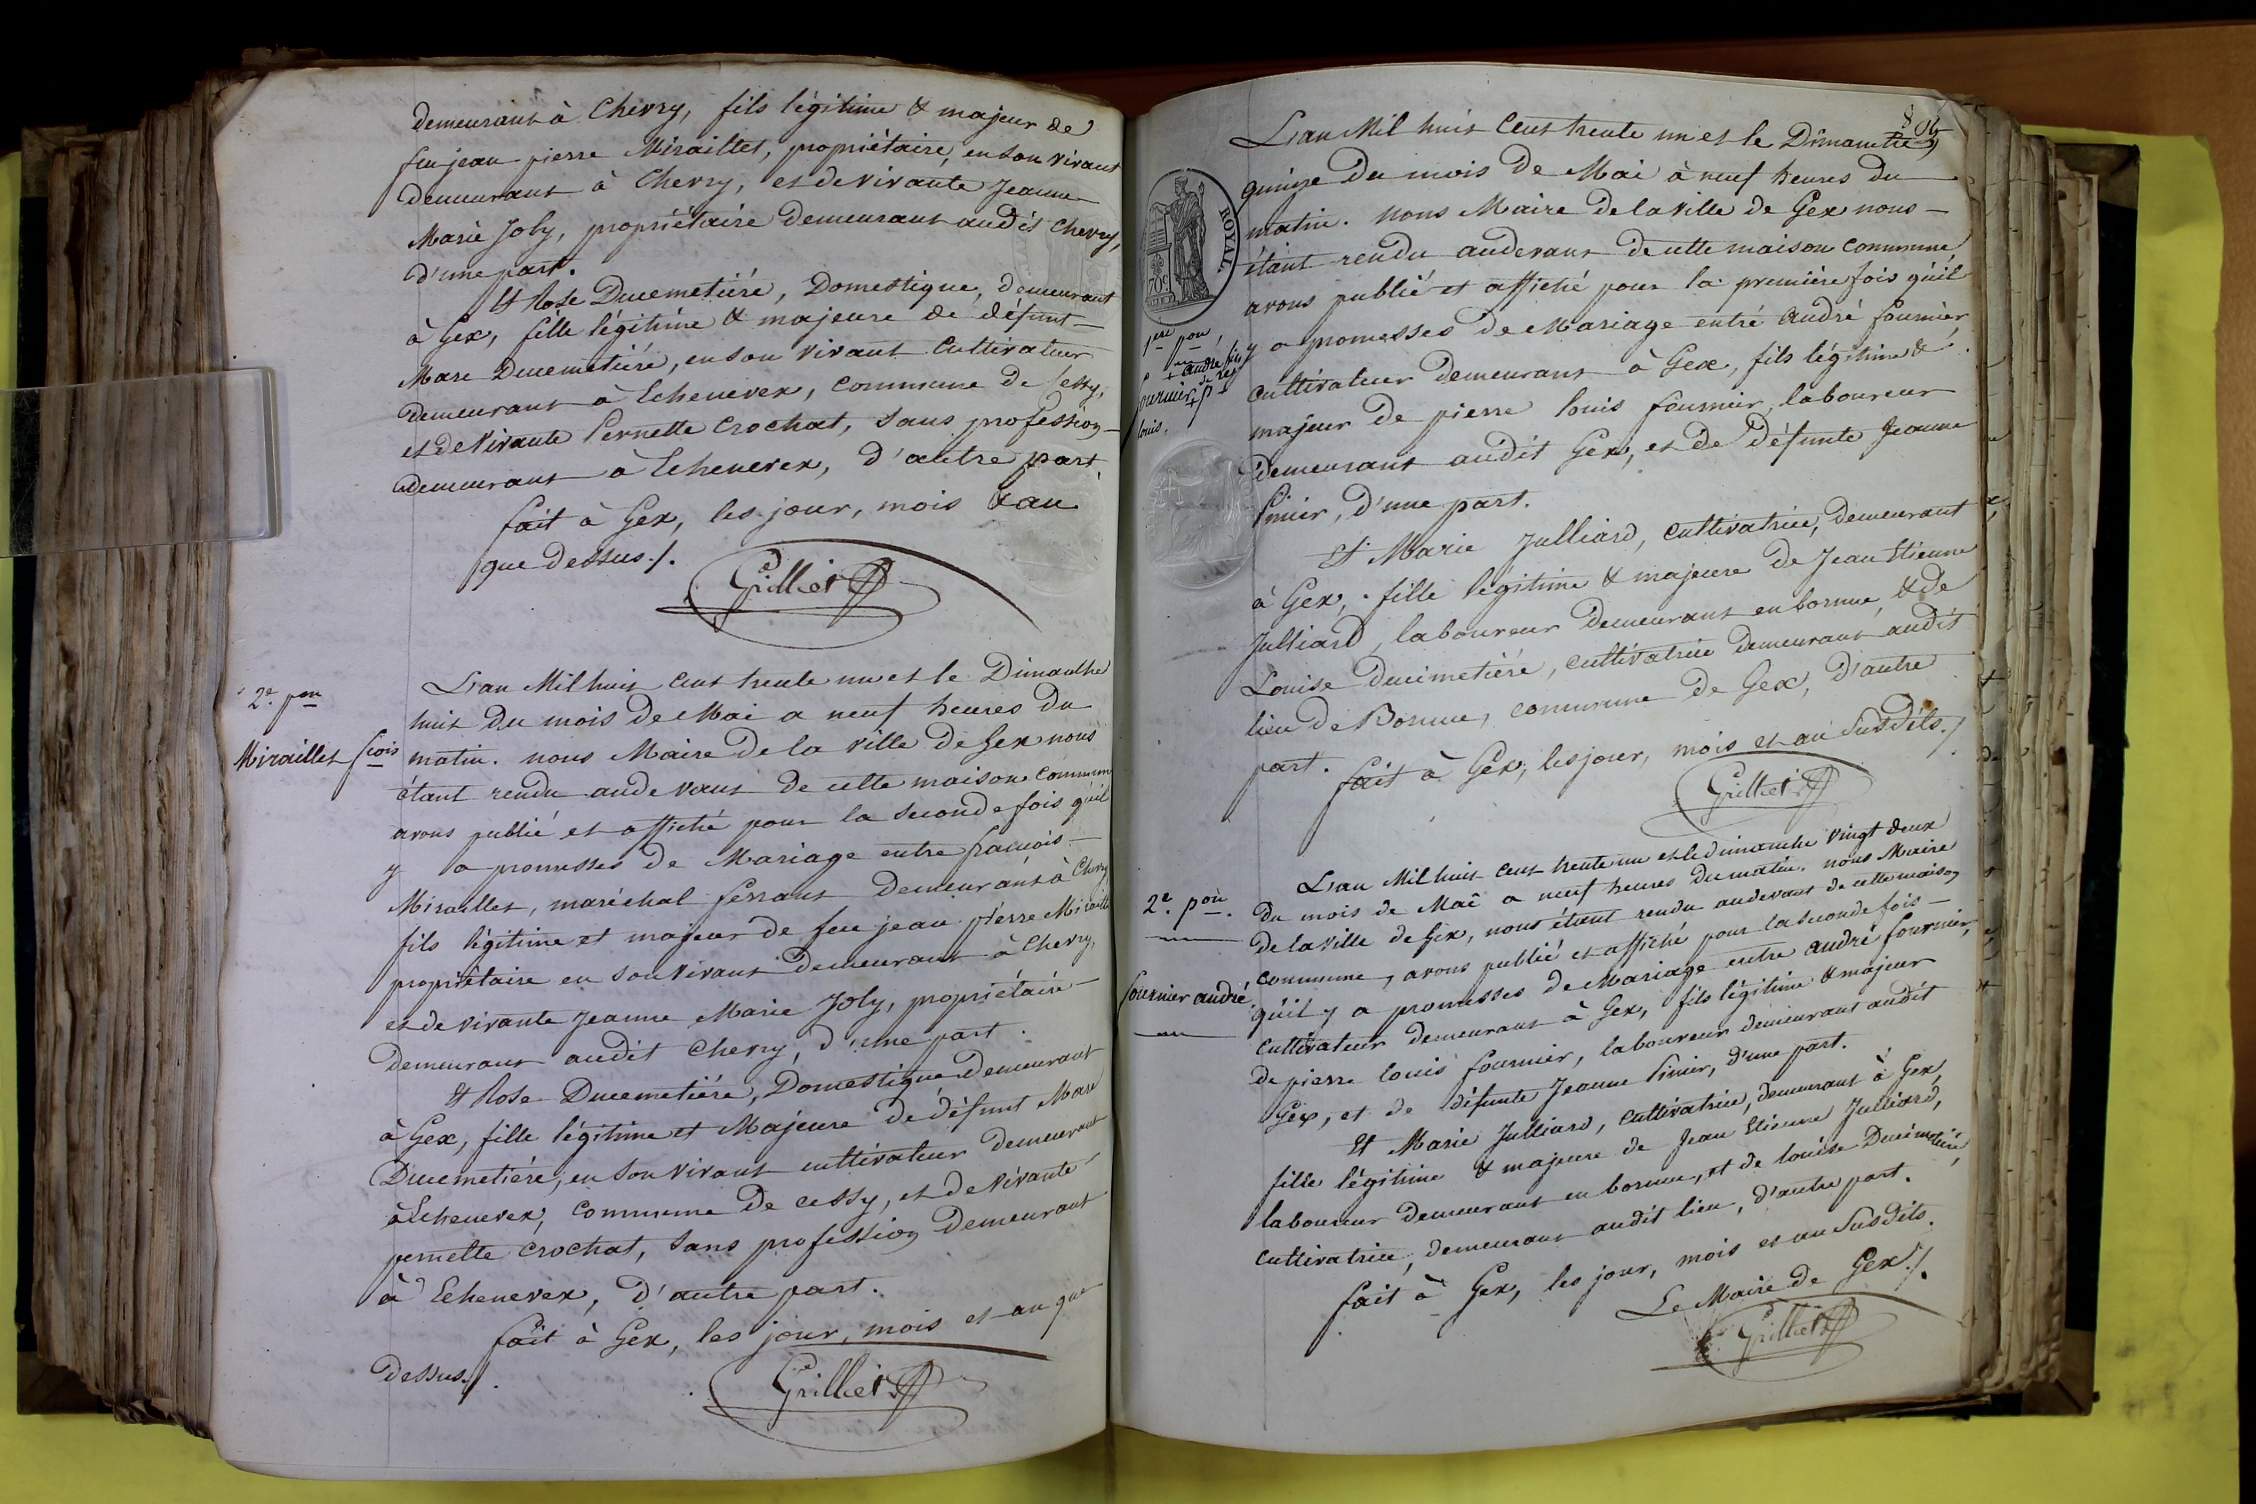 demeurant à Chevry, fils légitime & majeur de
feu jean pierre Miraillet, propriétaire, en son vivant
demeurant à Chevry, et de vivante Jeanne
Marie Joly, propriétaire demeurant audit Chevry,
d'une part.
Et Rose Ducemetière, Domestique, demeurant
à Gex, fille légitime & majeure de défunt
Marc Ducemetière, en son vivant Cultivateur
demeurant à Echenevex, commune de Cessy,
et de vivante Pernette Crochat, sans profession
demeurant à Echenevex, d'autre part.
fait à Gex, les jour, mois & an
que dessus ./.
Grilliet
2e. pon
Miraillet fcois
L'an Mil huit cent trente un et le Dimanche
huit du mois de Mai a neuf heures du
matin. nous Maire de la ville de Gex nous
étant rendu au devant de cette maison commune
avons publié et affiché pour la seconde fois qu'il
y a promesses de Mariage entre françois
Miraillet, maréchal ferrant demeurant à Chevry
fils légitime et majeur de feu jean pierre Miraillet
propriétaire en son vivant demeurant à Chevry,
et de vivante Jeanne Marie Joly, propriétaire
demeurant audit Chevry, d'une part.
Et Rose Ducemetière, Domestique demeurant
à Gex, fille légitime et Majeure de défunt Marc
Ducemetière, en son vivant cultivateur demeurant
à Echenevex, commune de cessy, et de vivante
pernette crochat, sans profession demeurant
à Echenevex, d'autre part.
fait à Gex, les jour, mois et an que
dessus ./.
Grilliet
L'an Mil huit Cent trente un et le Dimanche
quinze du mois de Mai à neuf heures du
matin. nous Maire de la ville de Gex nous
étant rendu au devant de cette maison commune
avons publié et affiché pour la première fois qu'il
y a promesses de Mariage entre André fournier
cultivateur demeurant à Gex, fils légitime &
majeur de pierre louis fournier, laboureur
demeurant audit Gex, et de défunte Jeanne
Pinier, d'une part.
Et Marie Julliard, cultivatrice, demeurant
à Gex, fille légitime & majeure de Jean Etienne
Julliard, laboureur demeurant en bornue, & de
Louise ducimetière, cultivatrice demeurant audit
lieu de Bornue, commune de Gex, d'autre
part.
fait à Gex, les jour, mois et an susdits ./.
Grilliet
ROYAL
70c
1ere pon
andré
fournier
louis.
2e. pon.
fournier andré
L'an Mil huit cent trente un et le dimanche vingt deux
du mois de Mai a neuf heures du matin. nous Maire
de la ville de Gex, nous étant rendu au devant de cette maison
commune, avons publié et affiché pour la seconde fois
qu'il y a promesses de Mariage entre andré fournier,
cultivateur demeurant à Gex, fils légitime & majeur
de pierre louis fournier, laboureur demeurant audit
Gex, et de défunte Jeanne Pinier, d'une part.
Et Marie Julliard, cultivatrice, demeurant à Gex,
fille légitime & majeure de Jean Etienne Julliard,
laboureur demeurant en bornue, et de louise Ducimetière,
cultivatrice, demeurant audit lieu, d'autre part.
fait à Gex, les jour, mois et an susdits.
Le Maire de Gex ./.
Grilliet